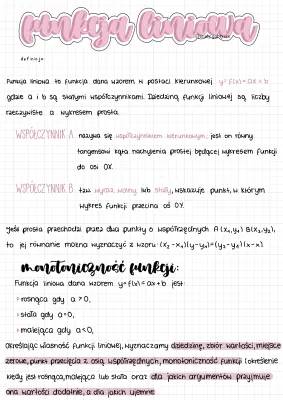 funkcja liniowa
definicja
Funkcja liniowa to funkcja dana wzorem w postaci kierunkowej y=f(x)=ax+b
gdzie a i b są stałymi współczynnikami. Dziedziną funkcji liniowej są liczby
rzeczywiste a wykresem prosta.
WSPÓŁCZYNNIK A nazywa się współczynnikiem kierunkowym, jest on równy
tangensowi kąta nachylenia prostej będącej wykresem funkcji
do osi OX.
WSPÓŁCZYNNIK B tzw. wyraz wolny lub stały, wskazuje punkt, w którym
wykres funkcji przecina oś OY.
Jeśli prosta przechodzi przez dwa punkty o współrzędnych A(x₁,y₁) B(x₂,y₂),
to jej równanie można wyznaczyć z wzoru: (x₂-x₁)(y-y₁)=(y₂-y₁)(x-x₁)
monotoniczność funkcji:
Funkcja liniowa dana wzorem y=f(x)=ax+b jest:
>rosnąca gdy a>0,
>stała gdy a=0,
>malejąca gdy a<0,
Określając własność funkcji liniowej, wyznaczamy dziedzinę, zbiór wartości, miejsce
zerowe, punkt przecięcia z osią współrzędnych, monotoniczność funkcji (określenie
kiedy jest rosnąca, malejąca lub stała oraz dla jakich argumentów przyjmuje
ona wartości dodatnie, a dla jakich ujemne